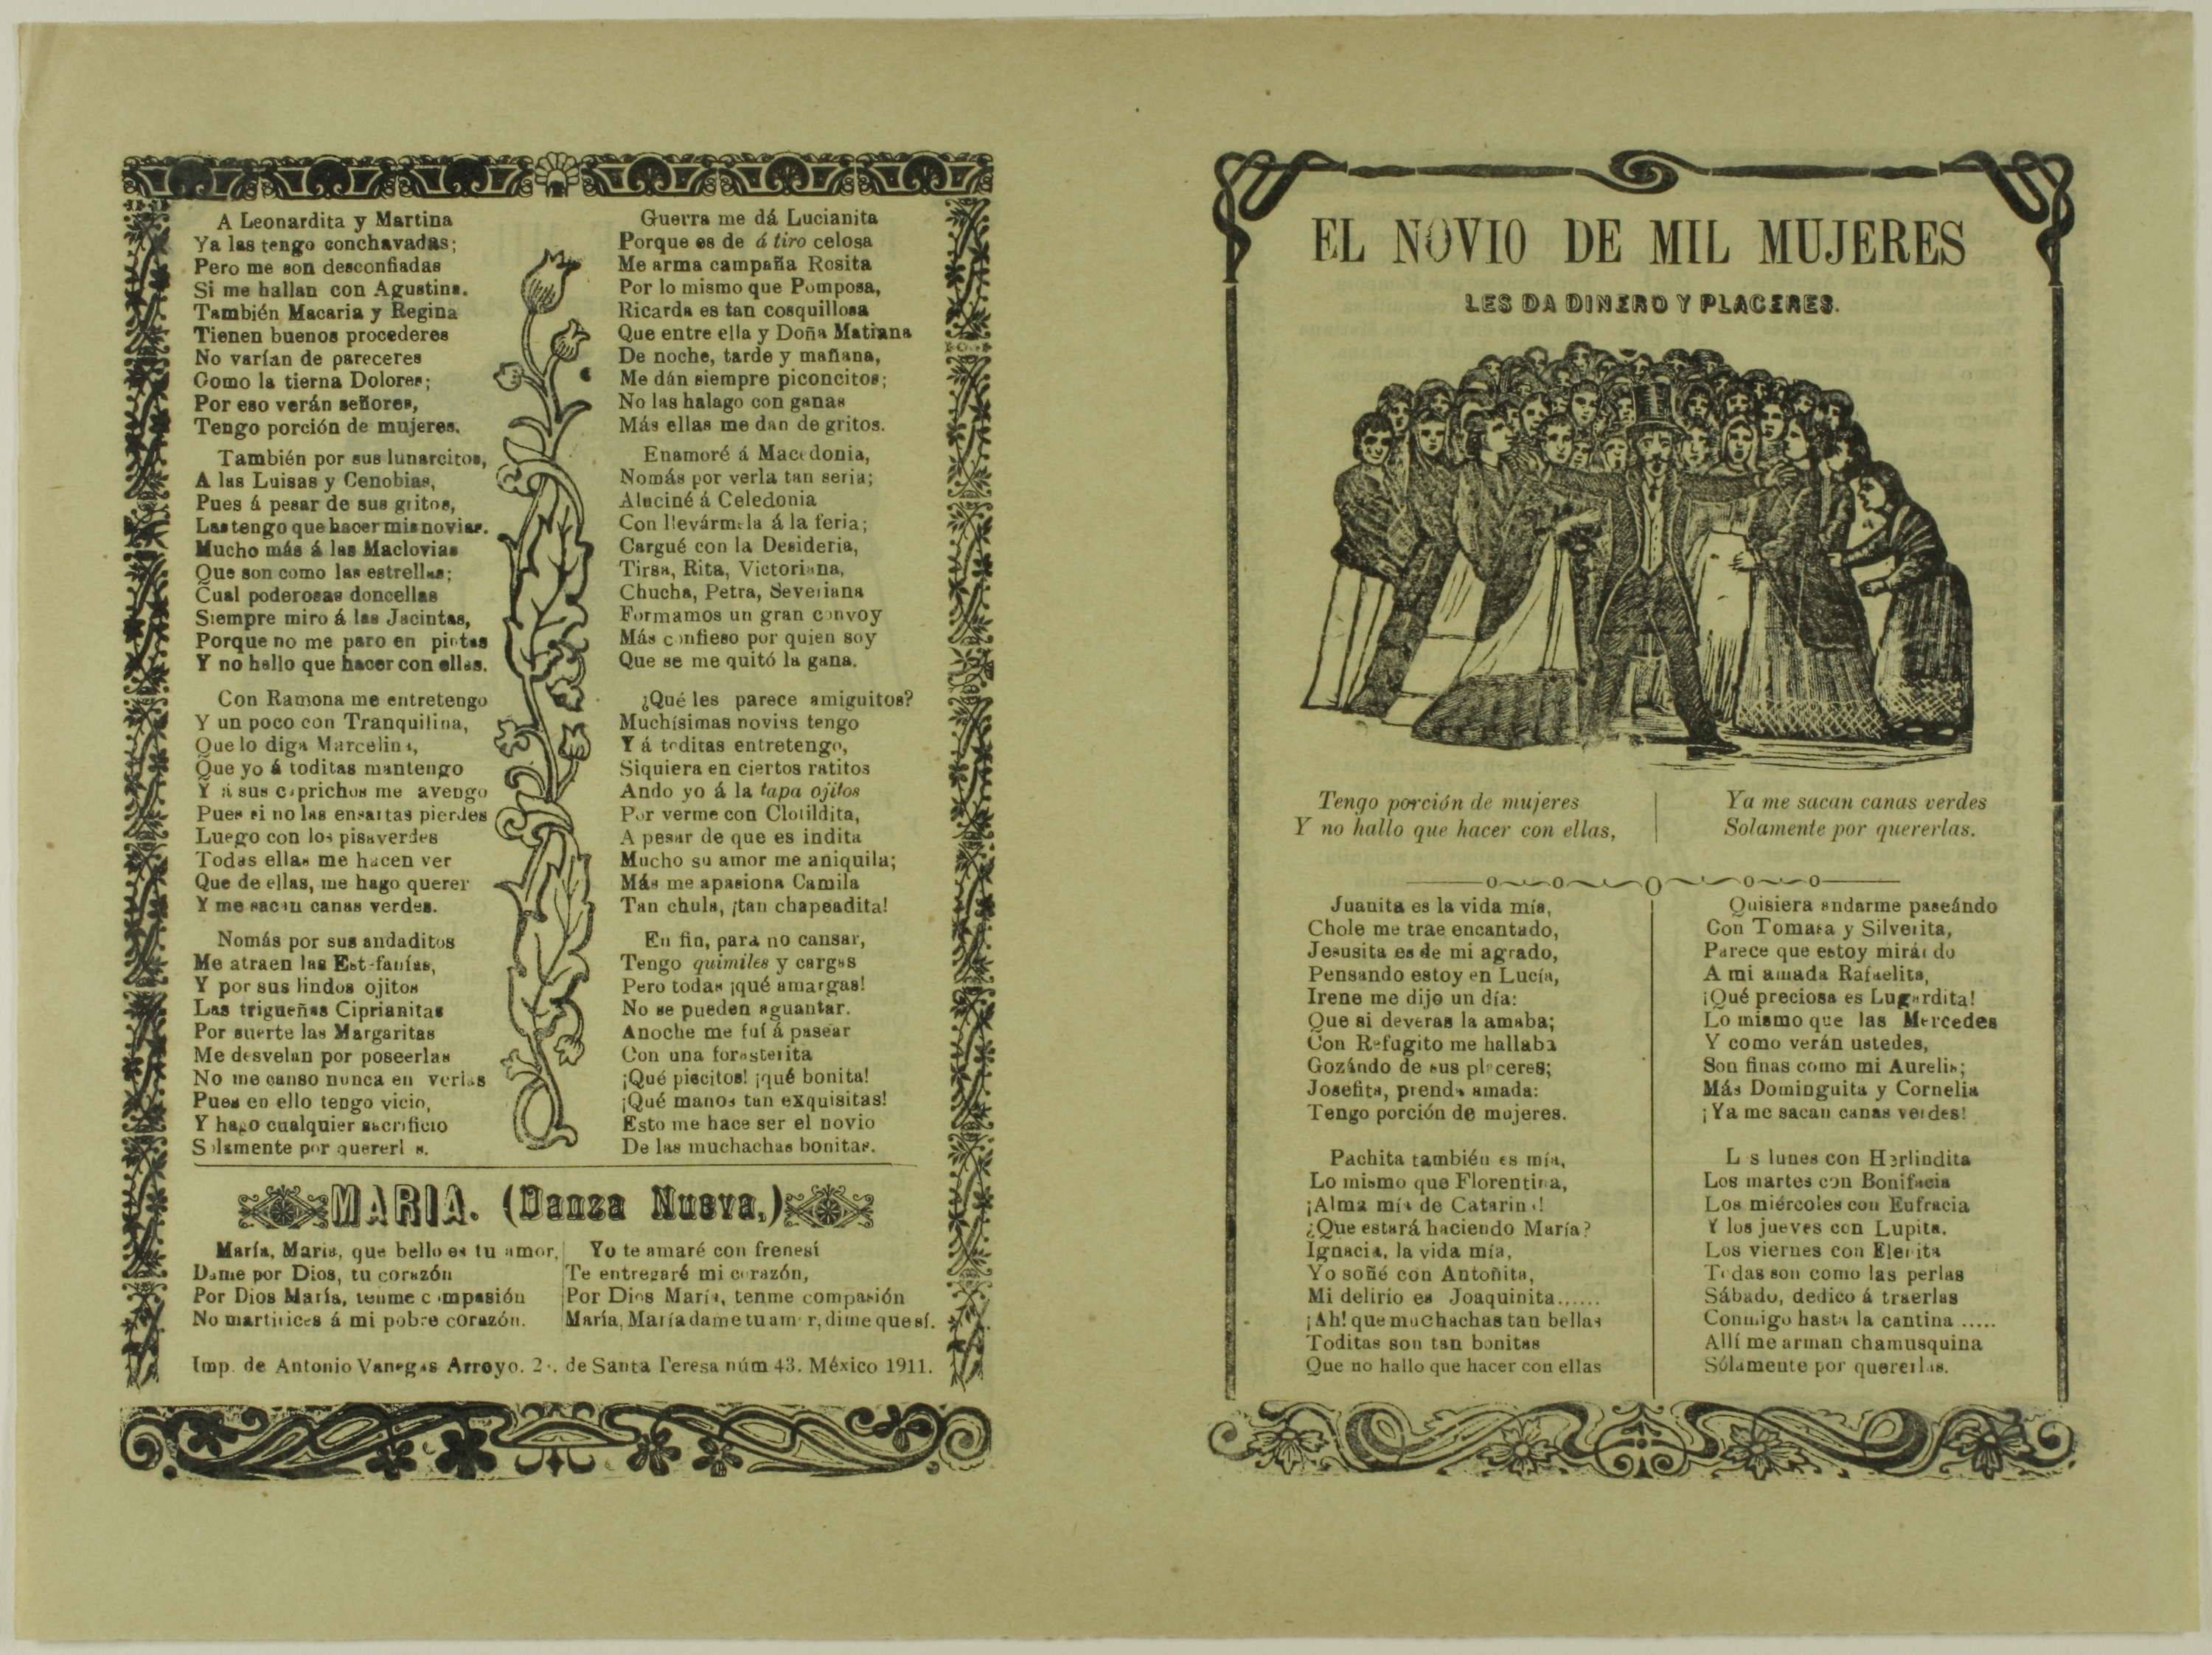 A Leonardita y Martina
Ya las tengo conchavadas;
Pero me son desconfiadas
Si me hallan con Agustina.
También Macaria y Regina
Tienen buenos procederes
No varían de pareceres
Como la tierna Dolores;
Por eso verán señores,
Tengo porción de mujeres.
También por sus lunarcitos,
A las Luisas y Cenobias,
Pues á pesar de sus gritos,
Las tengo que hacer mis novias.
Mucho más á las Maclovias
Que son como las estrellas;
Cual poderosas doncellas
Siempre miro á las Jacintas,
Porque no me paro en pintas
Y no hallo que hacer con ellas.
Con Ramona me entretengo
Y un poco con Tranquilina,
Que lo diga Marcelina,
Que yo á toditas mantengo
Y á sus caprichos me avengo
Pues si no las ensartas pierdes
Luego con los pisaverdes
Todas ellas me hacen ver
Que de ellas, me hago querer
Y me sacan canas verdes.
Nomás por sus andaditos
Me atraen las Estefanías,
Y por sus lindos ojitos
Las trigueñas Ciprianitas
Por suerte las Margaritas
Me desvelan por poseerlas
No me canso nunca en verlas
Pues en ello tengo vicio,
Y hago cualquier sacrificio
Solamente por quererlas.
Guerra me dá Lucianita
Porque es de á tiro celosa
Me arma campaña Rosita
Por lo mismo que Pomposa,
Ricarda es tan cosquillosa
Que entre ella y Doña Matiana
De noche, tarde y mañana,
Me dán siempre piconcitos;
No las halago con ganas
Más ellas me dan de gritos.
Enamoré á Macedonia,
Nomás por verla tan seria;
Aluciné á Celedonia
Con llevármela á la feria;
Cargué con la Desideria,
Tirsa, Rita, Victoriana,
Chucha, Petra, Severiana
Formamos un gran convoy
Más confieso por quien soy
Que se me quitó la gana.
¿Qué les parece amiguitos?
Muchísimas novias tengo
Y á toditas entretengo,
Siquiera en ciertos ratitos
Ando yo á la tapa ojitos
Por verme con Clotildita,
A pesar de que es indita
Mucho su amor me aniquila;
Más me apasiona Camila
Tan chula, ¡tan chapeadita!
En fin, para no cansar,
Tengo quimiles y cargas
Pero todas ¡qué amargas!
No se pueden aguantar.
Anoche me fuí á pasear
Con una forasterita
¡Qué piecitos! ¡qué bonita!
¡Qué manos tan exquisitas!
Esto me hace ser el novio
De las muchachas bonitas.
MARIA. (Danza Nueva.)
María, María, que bello es tu amor,
Dame por Dios, tu corazón
Por Dios María, tenme compasión
No martirices á mi pobre corazón.
Yo te amaré con frenesí
Te entregaré mi corazón,
Por Dios María, tenme compasión
María, María dame tu amor, dime que sí.
Imp. de Antonio Vanegas Arroyo. 2a. de Santa Teresa núm 43. México 1911.
EL NOVIO DE MIL MUJERES
LES DA DINERO Y PLACERES.
Tengo porción de mujeres
Y no hallo que hacer con ellas,
Ya me sacan canas verdes
Solamente por quererlas.
Juanita es la vida mía,
Chole me trae encantado,
Jesusita es de mi agrado,
Pensando estoy en Lucía,
Irene me dijo un día:
Que si deveras la amaba;
Con Refugito me hallaba
Gozándo de sus placeres;
Josefita, prenda amada:
Tengo porción de mujeres.
Pachita también es mía,
Lo mismo que Florentina,
¡Alma mía de Catarina!
¿Que estará haciendo María?
Ignacia, la vida mía,
Yo soñé con Antoñita,
Mi delirio es Joaquinita......
¡Ah! que muchachas tan bellas
Toditas son tan bonitas
Que no hallo que hacer con ellas
Quisiera andarme paseándo
Con Tomasa y Silverita,
Parece que estoy mirándo
A mi amada Rafaelita,
¡Qué preciosa es Lugardita!
Lo mismo que las Mercedes
Y como verán ustedes,
Son finas como mi Aurelia;
Más Dominguita y Cornelia
¡Ya me sacan canas verdes!
Los lunes con Herlindita
Los martes con Bonifacia
Los miércoles con Eufracia
Y los jueves con Lupita.
Los viernes con Elenita
Todas son como las perlas
Sábado, dedico á traerlas
Conmigo hasta la cantina .....
Allí me arman chamusquina
Sólamente por quererlas.